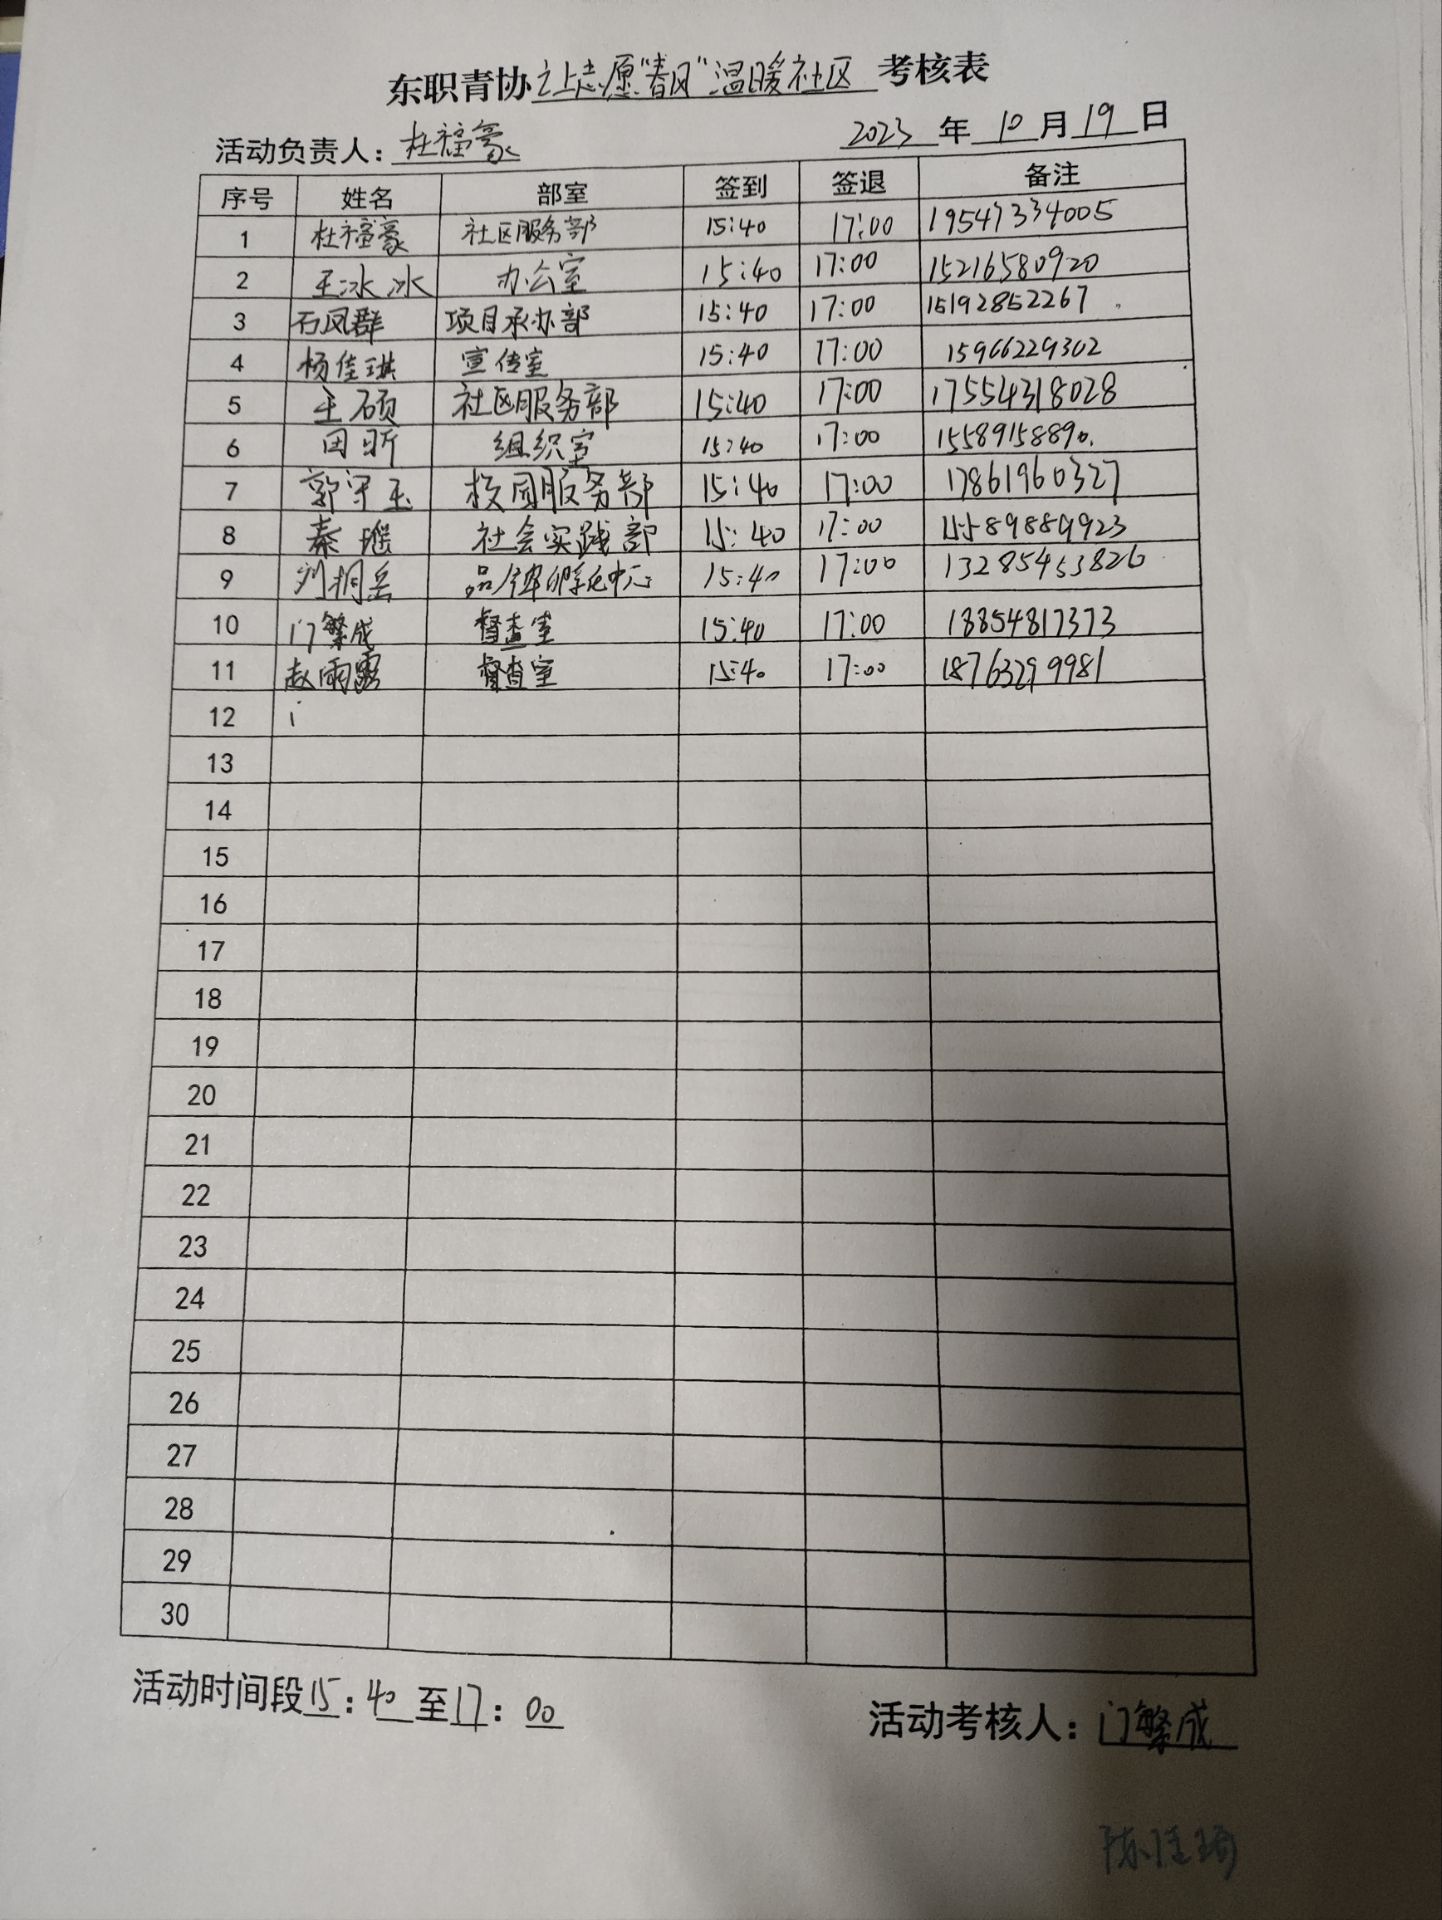 东职青协之上志愿“春风”温暖社区考核表
活动负责人：杜福豪 2023年10月19日
序号 姓名 部室 签到 签退 备注
1 杜福豪 社区服务部 15:40 17:00 19547334005
2 王冰冰 办公室 15:40 17:00 15216580920
3 石凤群 项目承办部 15:40 17:00 15192852267
4 杨佳琪 宣传室 15:40 17:00 15966229302
5 王硕 社区服务部 15:40 17:00 17554318028
6 田昕 组织室 15:40 17:00 15589158890.
7 郭守玉 校园服务部 15:40 17:00 17861960327
8 秦瑶 社会实践部 15:40 17:00 15589889923
9 刘桐岳 品牌孵化中心 15:40 17:00 13285453826
10 门繁成 督查室 15:40 17:00 18854817373
11 赵雨露 督查室 15:40 17:00 18763299981
12
13
14
15
16
17
18
19
20
21
22
23
24
25
26
27
28
29
30
活动时间段15：40至17：00 活动考核人：门繁成